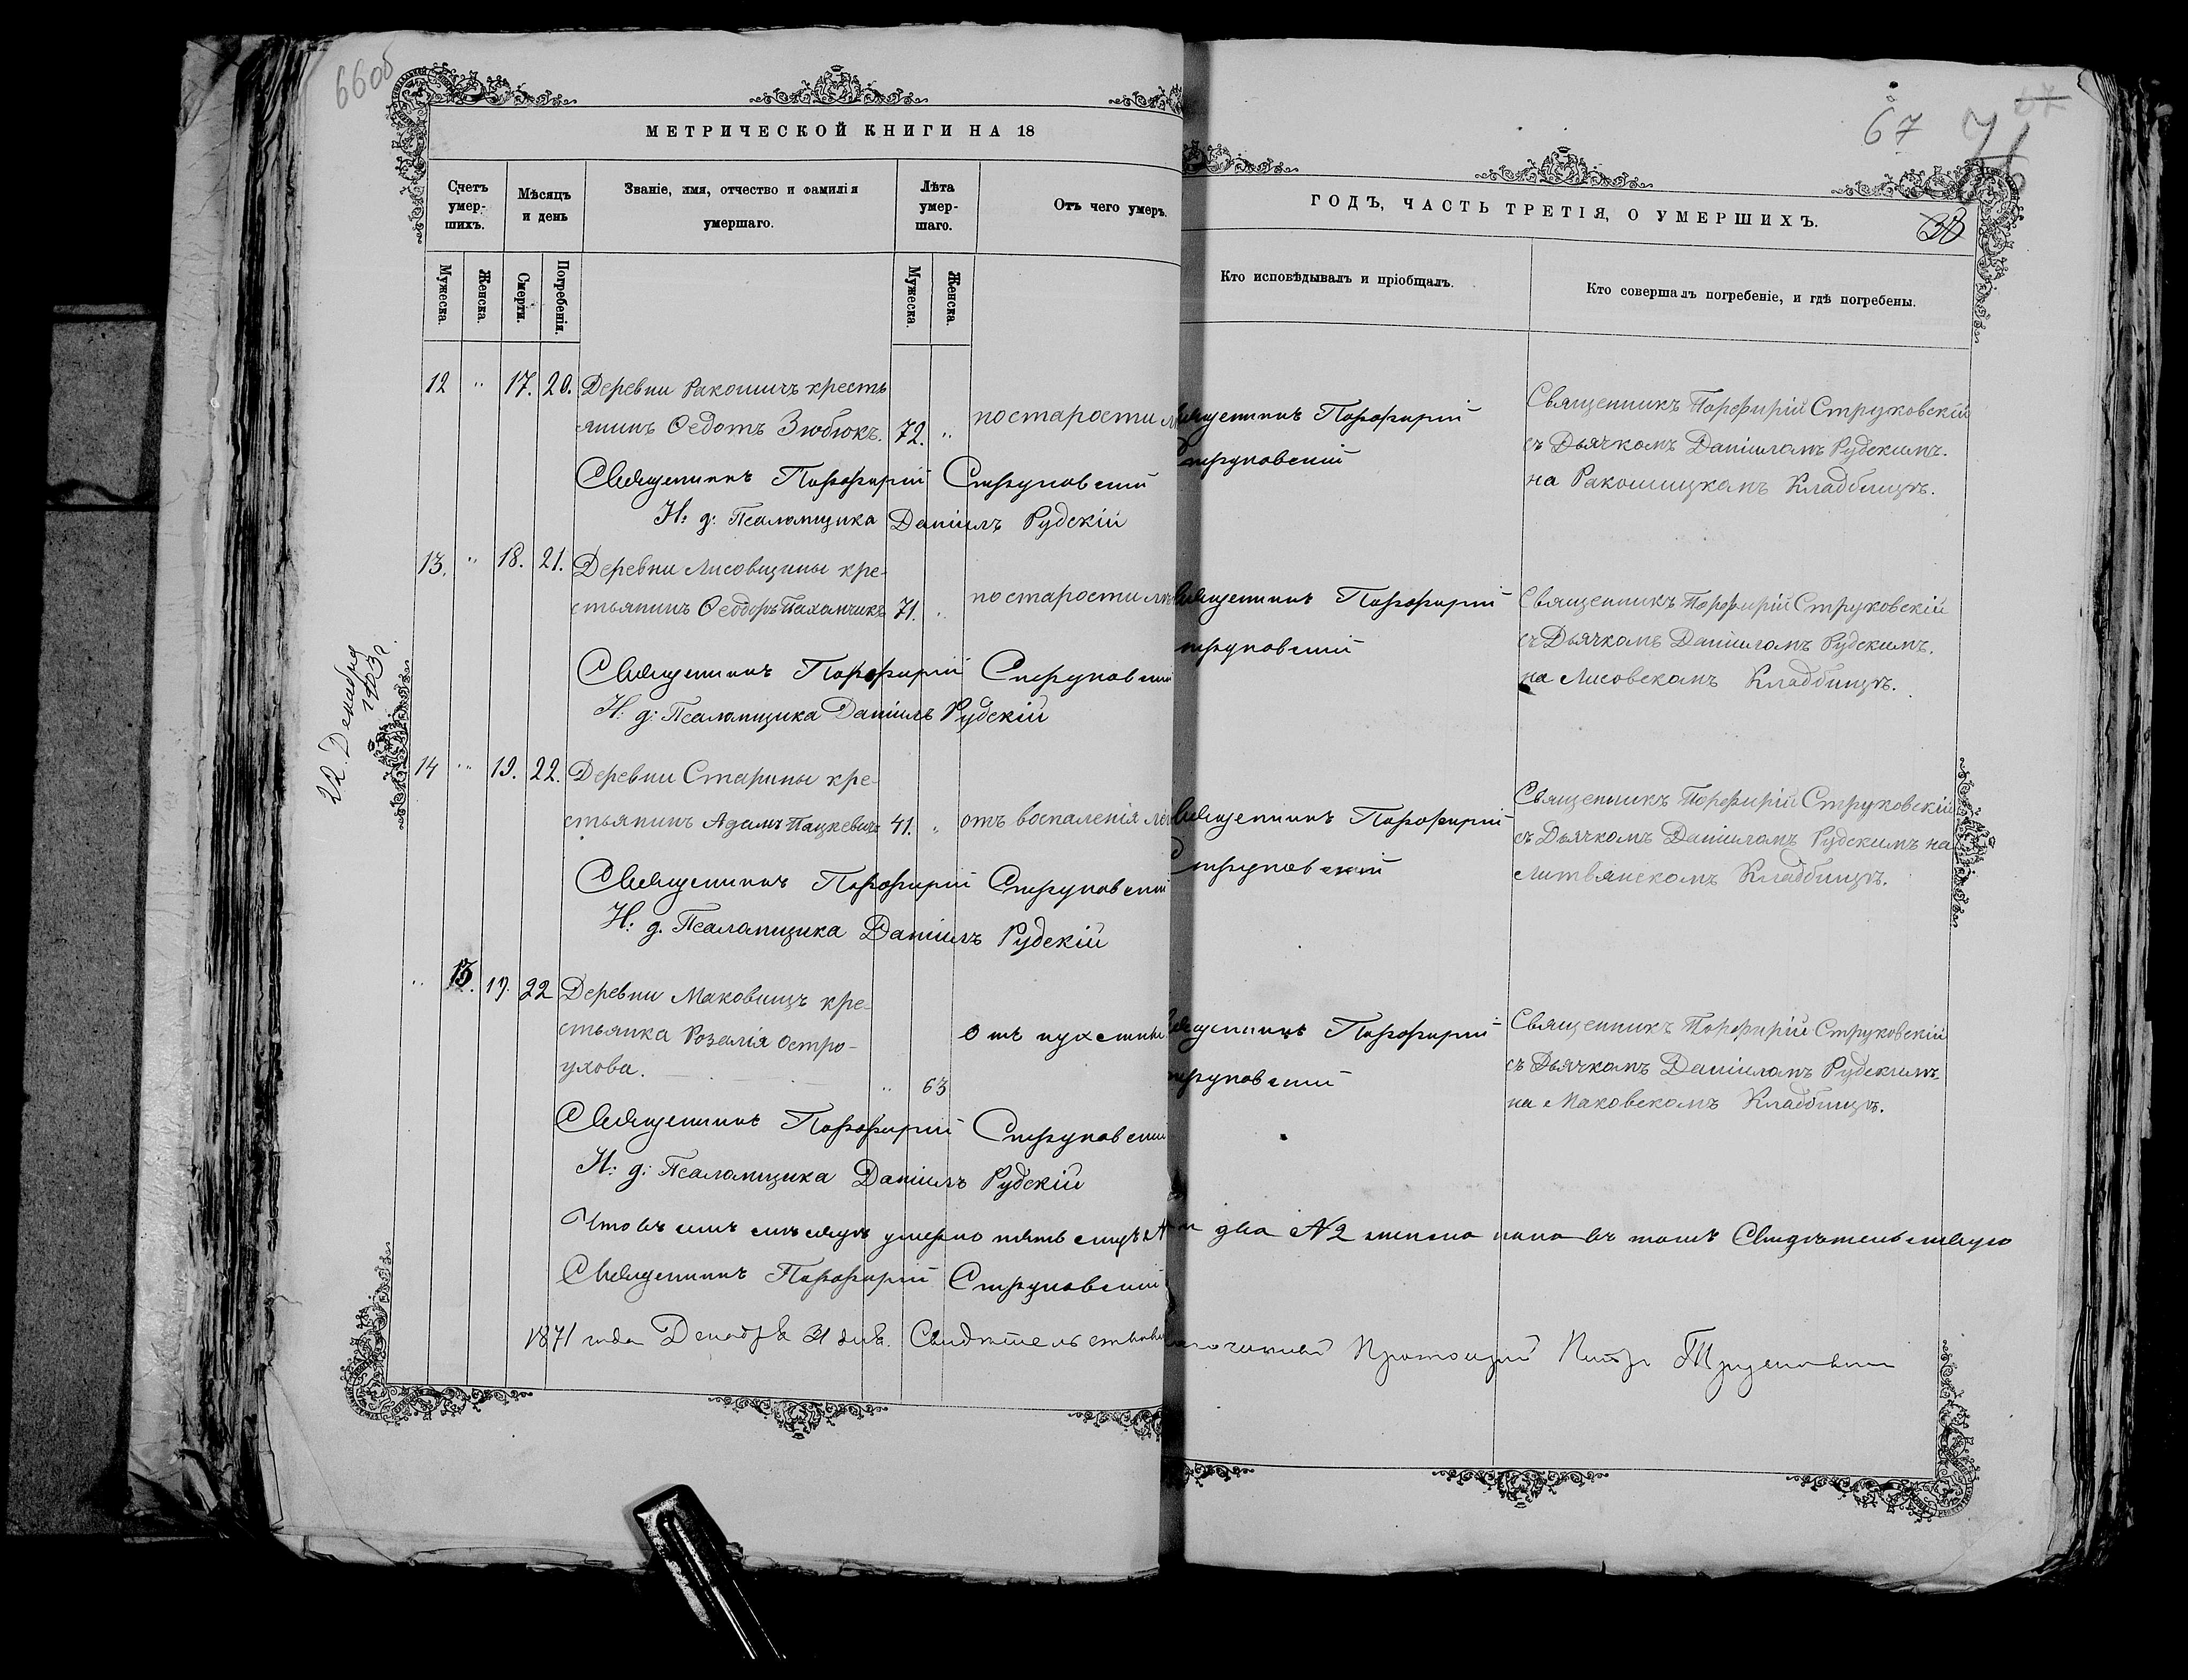 66об
МЕТРИЧЕСКОЙ КНИГИ НА 18
Счетъ умер-шихъ.
Мѣсяцъ и день
Званіе, имя, отчество и фамилія умершаго.
Лѣта умер-шаго.
Отъ чего умеръ.
Мужеска.
Женска.
Смерти.
Погребенія.
Мужеска.
Женска.
12 " 17. 20. Деревни Ракошичъ кресть
янинъ Ѳедотъ Зюбюкъ. 72. " по старости
Священникъ Порфирій Струковскій
И: д: Псаломщика Даніилъ Рудскій
13. " 18. 21. Деревни Лисовщины кре-
стьянинъ Ѳеодоръ Пахомчикъ 71. " по старости
Священникъ Порфирій Струковскій
И: д: Псаломщика Даніилъ Рудскій
22 Декабря
1903 г.
14 " 19. 22. Деревни Старины кре-
стьянинъ Адамъ Пацкевичъ 41. " отъ воспаленія
Священникъ Порфирій Струковскій
И: д. Псаломщика Даніилъ Рудскій
" 13. 19. 22 Деревни Маковищъ кре-
стьянка Розалія Остро-
ухова. " 63 Отъ
Священникъ Порфирій Струковскій
И: д: Псаломщика Даніилъ Рудскій
Что въ семъ мѣсяцѣ умерло пять душъ
Священникъ Порфирій Струковскій
1871 года Декабря 31 дня.
67
ГОДЪ, ЧАСТЬ ТРЕТІЯ, О УМЕРШИХЪ.
Кто исповѣдывалъ и пріобщалъ.
Кто совершалъ погребеніе, и гдѣ погребены.
Священникъ Порфирій
Струковскій
Священникъ Порфирій Струковскій
съ Дьячкомъ Даніиломъ Рудскимъ.
на Ракошицкомъ Кладбищѣ.
Священникъ Порфирій
Струковскій
Священникъ Порфирій Струковскій
съ Дьячкомъ Даніиломъ Рудскимъ.
на Лисовскомъ Кладбищѣ.
Священникъ Порфирій
Струковскій
Священникъ Порфирій Струковскій
съ Дьячкомъ Даніиломъ Рудскимъ на
Литвянскомъ Кладбищѣ.
Священникъ Порфирій
Струковскій
Священникъ Порфирій Струковскій
съ Дьячкомъ Даніиломъ Рудскимъ.
на Маковскомъ Кладбищѣ.
два №2 женска пола въ томъ Свидѣтельствую
Протоіерей